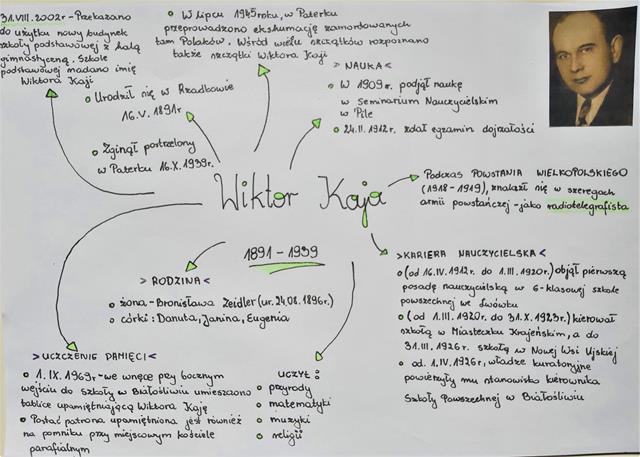 31.VIII.2002r - Przekazano
do użytku nowy budynek
szkoły podstawowej z halą
gimnastyczną. Szkole
podstawowej nadano imię
Wiktora Kaji
• W lipcu 1945 roku, w Paterku
przeprowadzono ekshumację zamordowanych
tam Polaków. Wśród wielu szczątków rozpoznano
także szczątki Wiktora Kaji
> NAUKA <
• W 1909r. podjął naukę
w Seminarium Nauczycielskim
w Pile
• 24.II.1912r. zdał egzamin dojrzałości
• Urodził się w Rzadkowie
16.V.1891r
• Zginął postrzelony
w Paterku 16.X.1939r.
Wiktor Kaja
1891 - 1939
Podczas POWSTANIA WIELKOPOLSKIEGO
(1918 - 1919), znalazł się w szeregach
armii powstańczej - jako radiotelegrafista
> RODZINA <
• żona - Bronisława Zeidler (ur. 24.08.1896r.)
• córki: Danuta, Janina, Eugenia
> KARIERA NAUCZYCIELSKA <
• (od 16.IV.1912r. do 1.III.1920r.) objął pierwszą
posadę nauczycielską w 6-klasowej szkole
powszechnej we
• (od 1.III.1920r. do 31.X.1923r.) kierował
szkołą w Miasteczku Krajeńskim, a do
31.III.1926r. szkołą w Nowej Wsi Ujskiej
• od 1.IV.1926r. władze kuratoryjne
powierzyły mu stanowisko kierownika
Szkoły Powszechnej w Białośliwiu
> UCZCZENIE PAMIĘCI <
• 1.IX.1969r - we wnęce przy bocznym
wejściu do Szkoły w Białośliwiu umieszczono
tablice upamiętniającą Wiktora Kaję
• Postać patrona upamiętniona jest również
na pomniku przy miejscowym kościele
parafialnym
UCZYŁ:
• przyrody
• matematyki
• muzyki
• religii